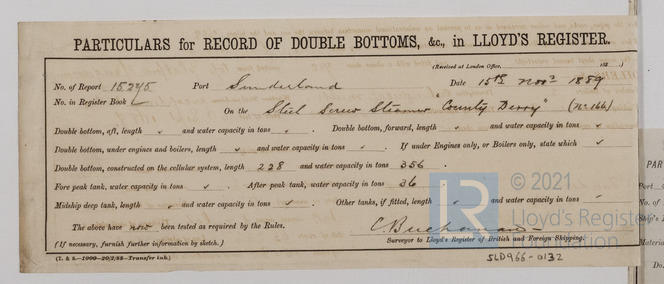 PARTICULARS for RECORD OF DOUBLE BOTTOMS, &c., in LLOYD'S REGISTER.
(Received at London Office, 188 .)
No. of Report 15245 Port Sunderland Date 15th Novr 1889
No. in Register Book
On the Steel Screw Steamer "County Derry" (No 166)
Double bottom, aft, length ✓ and water capacity in tons ✓ . Double bottom, forward, length ✓ and water capacity in tons ✓
Double bottom, under engines and boilers, length ✓ and water capacity in tons ✓ . If under Engines only, or Boilers only, state which ✓
Double bottom, constructed on the cellular system, length 228 and water capacity in tons 356 .
Fore peak tank, water capacity in tons ✓ . After peak tank, water capacity in tons 36 .
Midship deep tank, length ✓ and water capacity in tons ✓ Other tanks, if fitted, length ✓ and water capacity in tons ✓
The above have now been tested as required by the Rules.
C. Buchanan
Surveyor to Lloyd's Register of British and Foreign Shipping.
(If necessary, furnish further information by sketch.)
SLD966-0132
LR
© 2021
Lloyd's Register
Foundation
PAR
Port
No. of
Ship's
Material
Do.